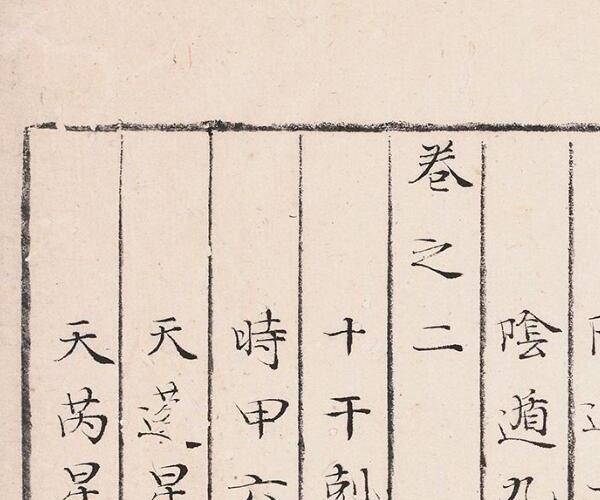 陰遁九
卷之二
十干剋
時甲六
天蓬星
天芮星